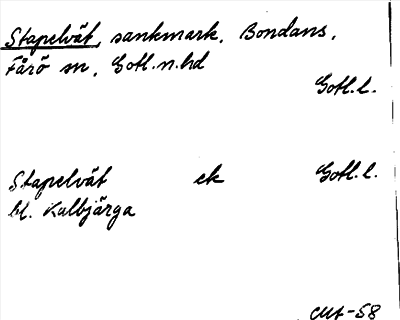 Stapelvät, sankmark, Bondans,
Fårö sn, Gotl.n.hd
Gotl.l.
Stapelvät ek Gotl.l.
bl. Kalbjärga
CMt-58